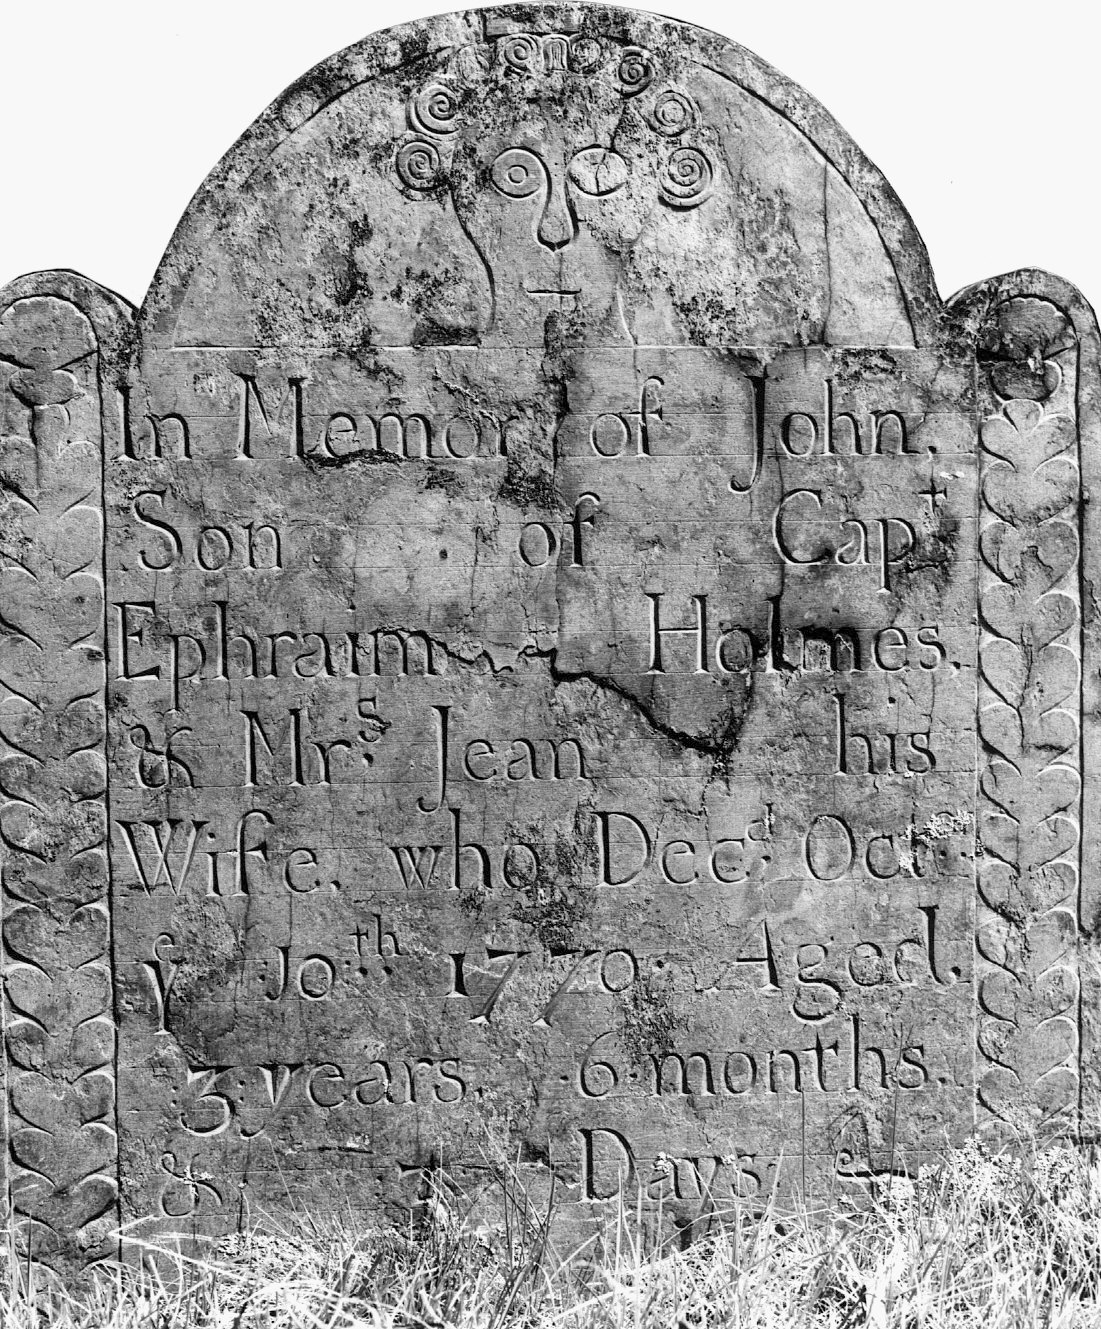 In Memory of John,
Son of Capt
Ephraim Holmes,
& Mrs. Jean his
Wife, who Decd: Oct:
ye 10:th 1770. Aged,
3 years, 6 months,
& Days